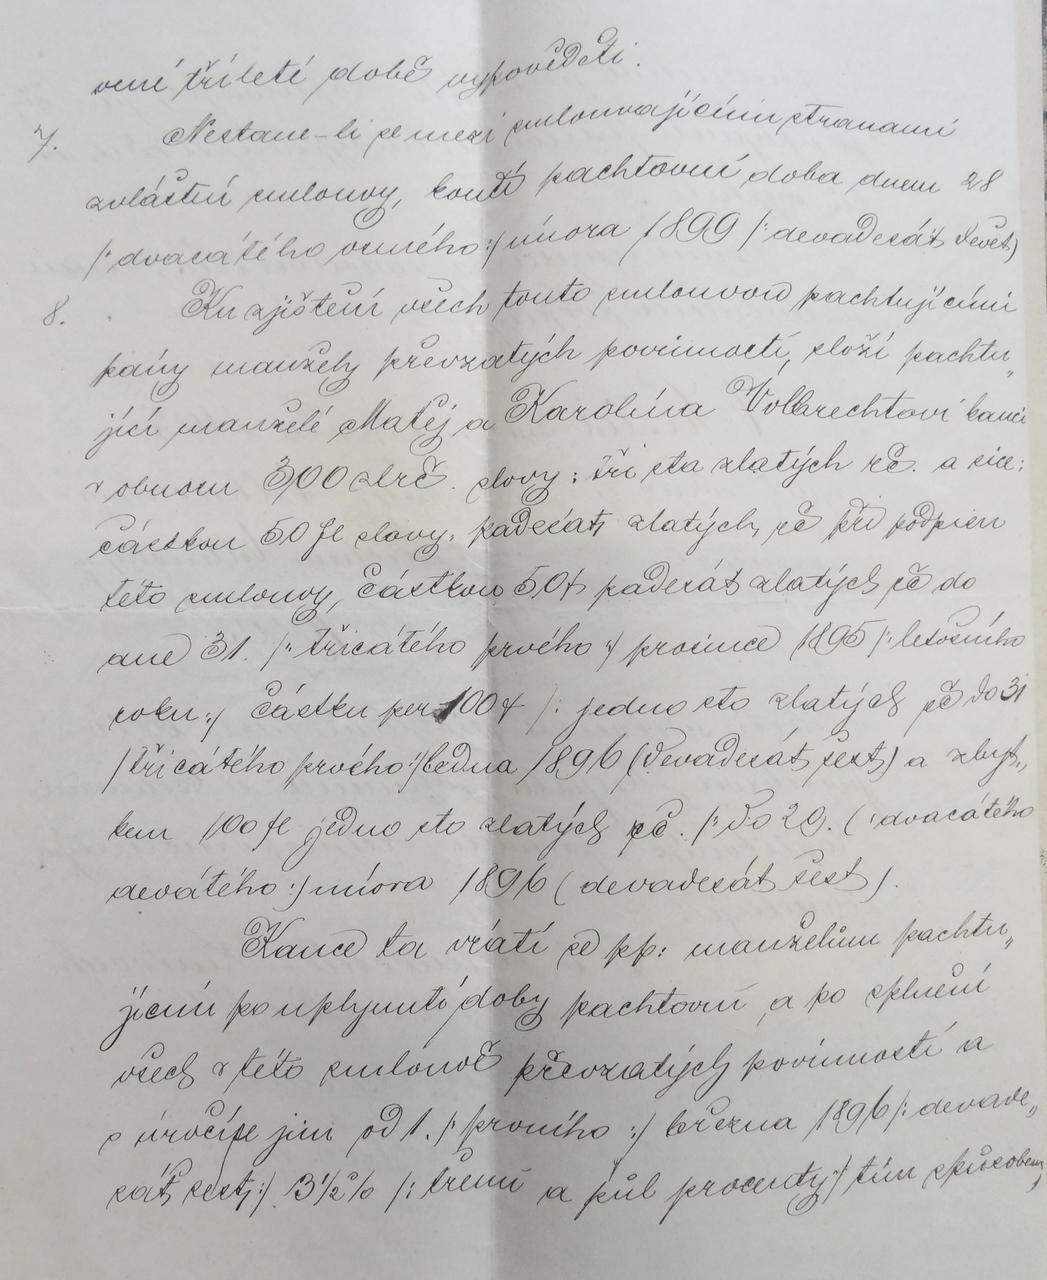 vené tříleté době vypověděti.
7. Nestane-li se mezi smlouvajícími stranami
zvláštní smlouvy, končí pachtovní doba dnem 28
/: dvacátého osmého :/ února 1899 /: devadesát devět)
8. Ku zjištění všech touto smlouvou pachtujícími
pány manžely převzatých povinností, složí pachtu„
jící manželé Matěj a Karolína Vollbrechtovi kauci
v obnosu 300 zl rč. slovy: tři sta zlatých rč. a sice:
částkou 50 fl slovy: padesát zlatých rč při podpisu
této smlouvy, částkou 50 f padesát zlatých rč do
dne 31. /: třicátého prvého :/ prosince 1895 /: letošního
roku :/ částku per 100 f /: jedno sto zlatých rč do 31
/třicátého prvého :/ ledna 1896 (devadesát šest) a zbyt„
kem 100 fl jedno sto zlatých rč. /: do 29. (dvacátého
devátého :/ února 1896 (devadesát šest).
Kauce ta vrátí se pp: manželům pachtu„
jícím po uplynutí doby pachtovní, a po splnění
všech v této smlouvě převzatých povinností a
zúročí se jim od 1. /: prvního :/ března 1896 /: devade„
sát šest :/ 3 1/2 % /: třemi a půl procenty :/ tím způsobem,